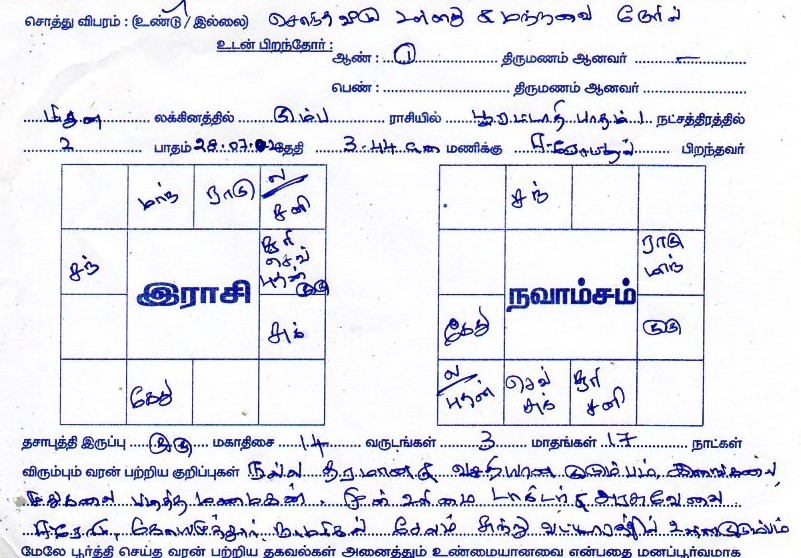 சொத்து விபரம் : (உண்டு / இல்லை) சொந்த வீடு உள்ளது & மற்றவை நேரில்
உடன் பிறந்தோர் : ஆண் : 1 திருமணம் ஆனவர் –
பெண் : திருமணம் ஆனவர்
மிதுன லக்கினத்தில் கும்ப ராசியில் பூரட்டாதி பாதம் 1 நட்சத்திரத்தில்
2 பாதம் 28.07.02 தேதி 3.44 am மணிக்கு பிறந்தவர்
மாந் ராகு ல/ சனி
சந் சூரி செவ் புதன் குரு
இராசி
சுக்
கேது
சந்
ராகு மாந்
நவாம்சம்
கேது குரு
ல/ புதன் செவ் சுக் சூரி சனி
தசாபுத்தி இருப்பு குரு மகாதிசை 14 வருடங்கள் 3 மாதங்கள் 17 நாட்கள்
விரும்பும் வரன் பற்றிய குறிப்புகள் நல்ல தரமான & வசதியான குடும்பம்,
படித்த மணமகன். டாக்டர் & அரசு வேலை
கோயமுத்தூர் நாமக்கல் சேலம்
மேலே பூர்த்தி செய்த வரன் பற்றிய தகவல்கள் அனைத்தும் உண்மையானவை என்பதை மனப்பூர்வமாக